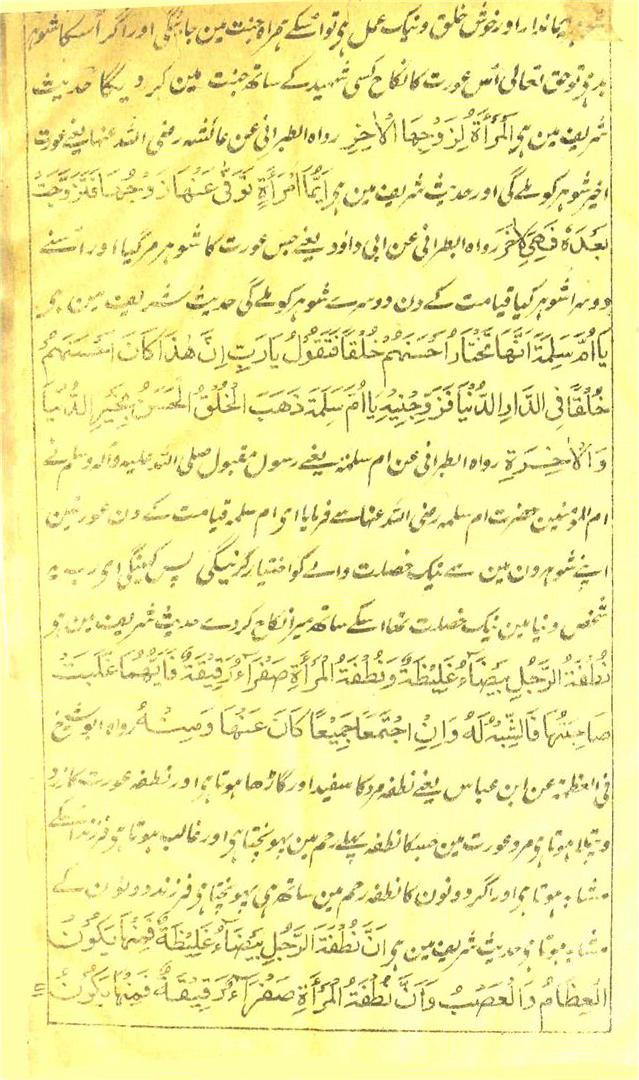 ایماندار اور خوش خلق و نیک عمل ہو تو اسکے ہمراہ جنت مین جائیگی اور اگر اسکا شوہر
بد ہو تو حق تعالی اُس عورت کا نکاح کسی شہید کے ساتھ جنت مین کر دیگا حدیث
شریف مین ہی اَلْمَرْأَةُ لِزَوْجِهَا الْاٰخِرِ رواہ الطبرانی عن عائشہ رضی اللہ عنہا یعنے عورت
اخیر شوہر کو ملے گی اور حدیث شریف مین ہی اَيُّمَا امْرَأَةٍ تُوُفِّیَ عَنْهَا زَوْجُهَا فَتَزَوَّجَتْ
بَعْدَهٗ فَهِيَ لِاٰخَرَ رواہ الطبرانی عن ابی داؤد یعنے جس عورت کا شوہر مر گیا اور اسنے
دوسرا شوہر کیا قیامت کے دن دوسرے شوہر کو ملے گی حدیث شریف مین ہی
يَا اُمَّ سَلِمَةَ اِنَّهَا تَخْتَارُ اَحْسَنَهُمْ خُلُقًا فَتَقُوْلُ يَا رَبِّ اِنَّ هٰذَا كَانَ اَحْسَنَهُمْ
خُلُقًا فِی الدَّارِ الدُّنْيَا فَزَوِّجْنِيْهِ يَا اُمَّ سَلِمَةَ ذَهَبَ الْخُلُقُ الْحَسَنُ بِخَيْرِ الدُّنْيَا
وَالْاٰخِرَةِ رواہ الطبرانی عن ام سلمۃ یعنے رسول مقبول صلی اللہ علیہ وآلہ وسلم نے
ام المومنین حضرت ام سلمہ رضی اللہ عنہا سے فرمایا ای ام سلمہ قیامت کے دن عورتین
اپنے شوہرون مین سے نیک خصلت والے کو اختیار کرینگی پس کہینگی ای رب یہ
شخص دنیا مین نیک خصلت تھا اسکے ساتھ میرا نکاح کردے حدیث شریف مین ہو
نُطْفَةُ الرَّجُلِ بَيْضَآءُ غَلِيْظَةٌ وَنُطْفَةُ الْمَرْأَةِ صَفْرَآءُ رَقِيْقَةٌ فَاَيُّهُمَا غَلَبَتْ
صَاحِبَتَهَا فَالشِّبْهُ لَهٗ وَاِنِ اجْتَمَعَا جَمِيْعًا كَانَ عَنْهَا وَمِنْهُ رواہ ابو الشیخ
فی العظمۃ عن ابن عباس یعنے نطفہ مرد کا سفید اور گاڑھا ہوتا ہی اور نطفہ عورت کا زرد
و پتلا ہوتا ہی مرد عورت مین جسکا نطفہ پہلے رحم مین پہونچتا ہی اور غالب ہوتا ہی فرزند اسکے
مشابہ ہوتا ہی اور اگر دونون کا نطفہ رحم مین ساتھ ہی پہونچتا ہی فرزند دونون کے
مشابہ ہوتا ہی حدیث شریف مین ہی اِنَّ نُطْفَةَ الرَّجُلِ بَيْضَآءُ غَلِيْظَةٌ فَمِنْهَا يَكُوْنُ
الْعِظَامُ وَالْعَصَبُ وَاَنَّ نُطْفَةَ الْمَرْأَةِ صَفْرَآءُ رَقِيْقَةٌ فَمِنْهَا يَكُوْنُ